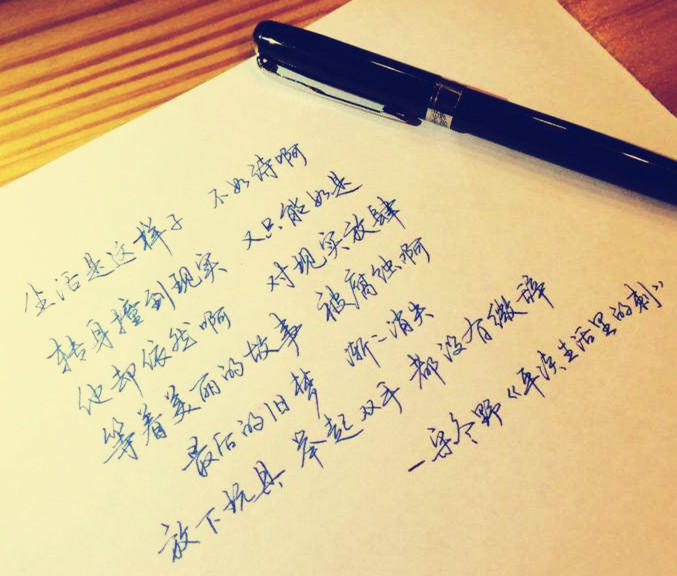 生活是这样子 不如诗啊
转身撞到现实 又只能如是
他却依然啊 对现实放肆
等着美丽的故事 被腐蚀啊
最后的旧梦 渐〻消失
放下玩具 举起双手 都没有微辞
—宋冬野《平淡生活里的刺》